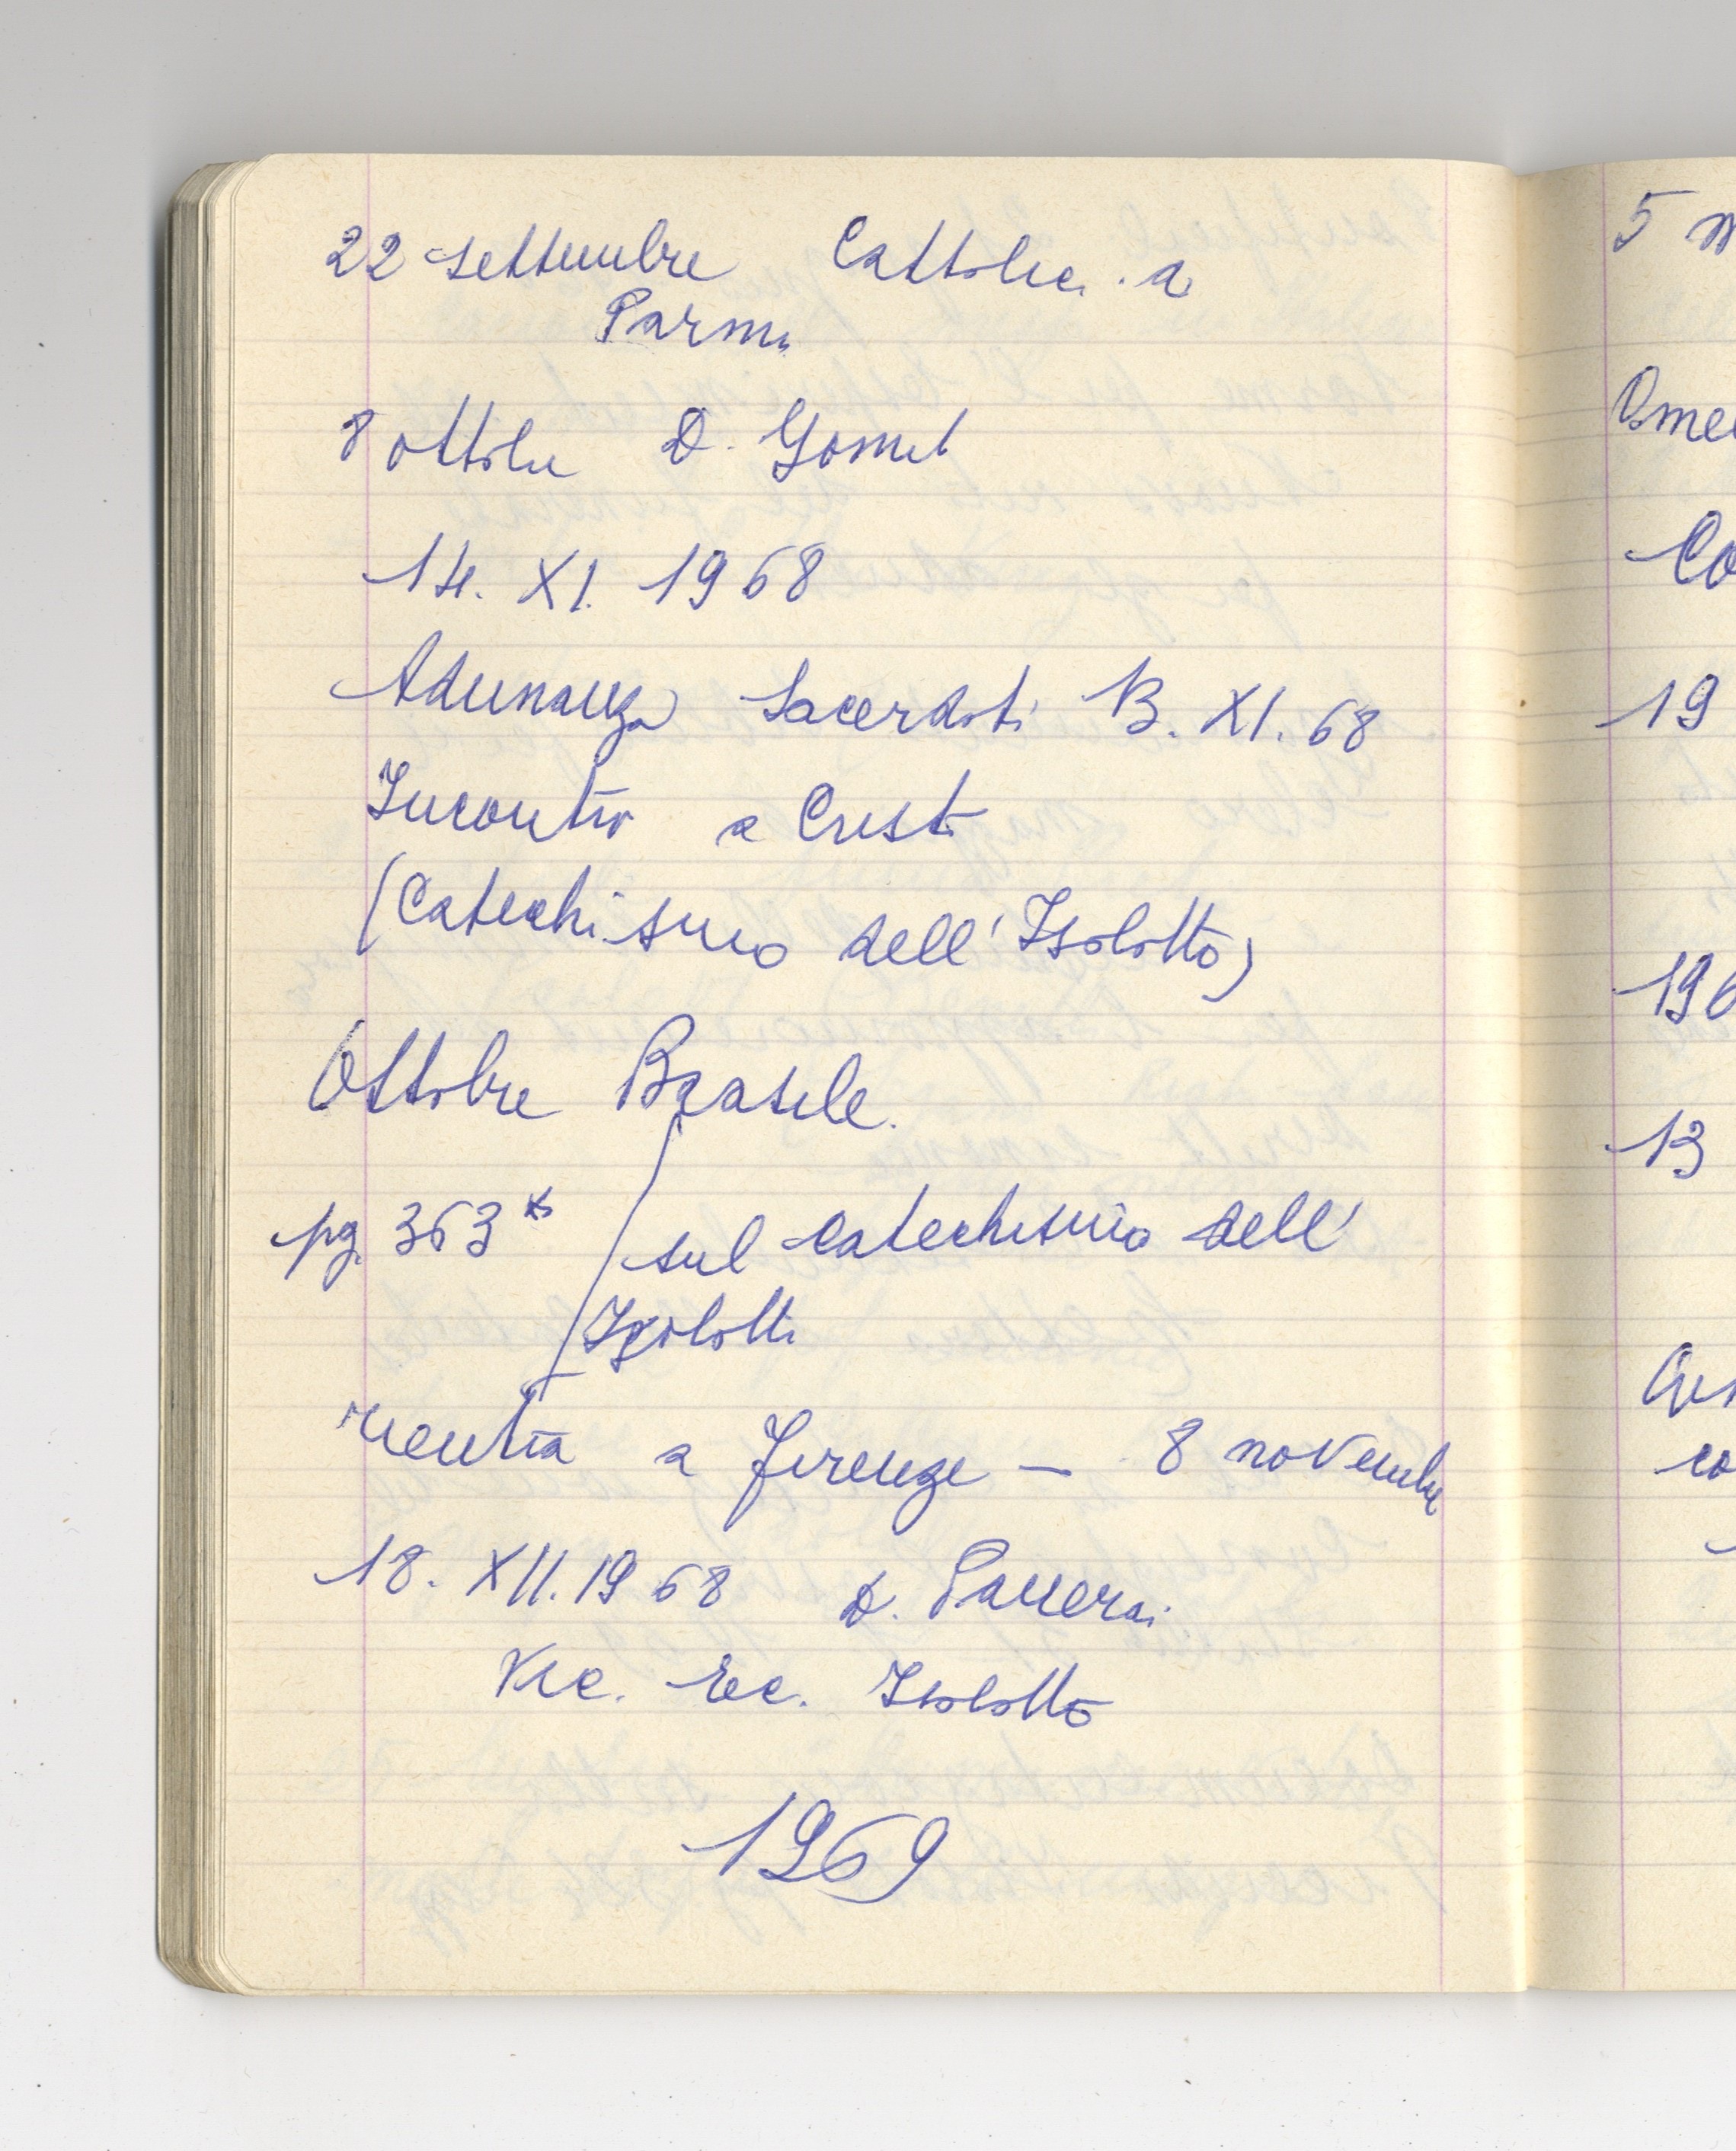 22 settembre Cattolici a
Parma
8 ottobre D. Gomet
14. XI. 1968
Adunanza Sacerdoti 13. XI. 68
Incontro a Cristo
(Catechismo dell'Isolotto)
Ottobre Brasile.
pg. 363
sul catechismo dell'
Isolotto
rientra a Firenze — 8 novembre
18. XII. 1968 D. Panerai
Vic. Ec. Isolotto
1969
5
19
13